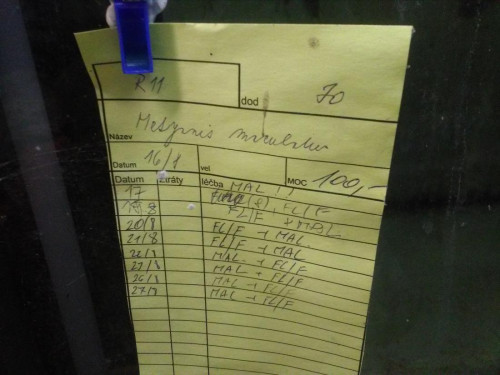 R11
dod JO
Název Metynnis
Datum 16/8 vel MOC 100,-
Datum ztráty léčba MAL
17 FL/F
18/8 FL/F + MAL
20/8 FL/F + MAL
21/8 FL/F + MAL
22/8 MAL + FL/F
MAL + FL/F
26/8 MAL + FL/F
27/8 MAL + FL/F